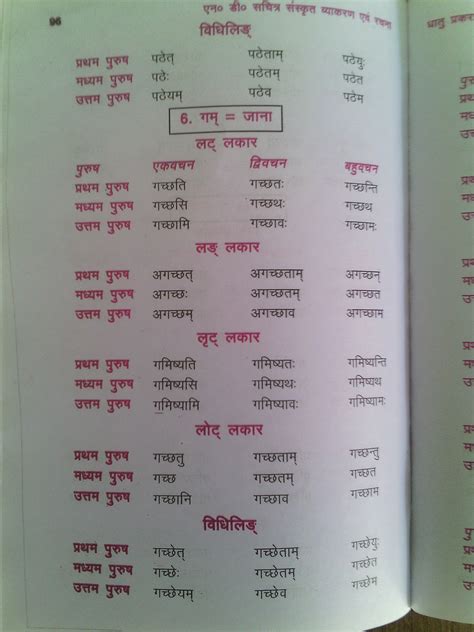 96 एन० डी० सचित्र संस्कृत व्याकरण एवं रचना
विधिलिङ्
प्रथम पुरुष पठेत् पठेताम् पठेयुः
मध्यम पुरुष पठेः पठेतम् पठेत
उत्तम पुरुष पठेयम् पठेव पठेम
6. गम् = जाना
लट् लकार
पुरुष एकवचन द्विवचन बहुवचन
प्रथम पुरुष गच्छति गच्छतः गच्छन्ति
मध्यम पुरुष गच्छसि गच्छथः गच्छथ
उत्तम पुरुष गच्छामि गच्छावः गच्छामः
लङ् लकार
प्रथम पुरुष अगच्छत् अगच्छताम् अगच्छन्
मध्यम पुरुष अगच्छः अगच्छतम् अगच्छत
उत्तम पुरुष अगच्छम् अगच्छाव अगच्छाम
लृट् लकार
प्रथम पुरुष गमिष्यति गमिष्यतः गमिष्यन्ति
मध्यम पुरुष गमिष्यसि गमिष्यथः गमिष्यथ
उत्तम पुरुष गमिष्यामि गमिष्यावः गमिष्यामः
लोट् लकार
प्रथम पुरुष गच्छतु गच्छताम् गच्छन्तु
मध्यम पुरुष गच्छ गच्छतम् गच्छत
उत्तम पुरुष गच्छानि गच्छाव गच्छाम
विधिलिङ्
प्रथम पुरुष गच्छेत् गच्छेताम् गच्छेयुः
मध्यम पुरुष गच्छेः गच्छेतम् गच्छेत
उत्तम पुरुष गच्छेयम् गच्छेव गच्छेम
धातु प्रकर